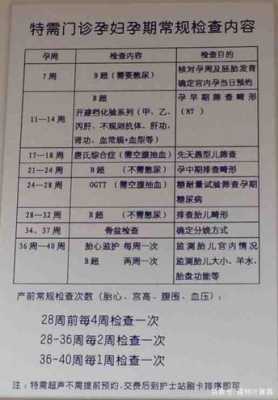 特需门诊孕妇孕期常规检查内容
孕周 检查内容 检查目的
7周 B超(需要憋尿) 核对孕周及胚胎发育
确定宫内孕当日预约
11—14周 B超 孕早期筛查畸形
开建档化验系列(甲、乙、 (NT)
丙肝、不规则抗体、肝功、
肾功、血常规+血型等)
17—18周 唐氏综合症(需空腹抽血) 先天愚型儿筛查
21—24周 B超(不需憋尿) 孕中期排查畸形
24—28周 OGTT(需空腹抽血) 糖耐量试验筛查孕期
糖尿病
28—32周 B超(不需憋尿) 排查胎儿畸形
34、37周 骨盆检查 确定分娩方式
36周—40周 胎心监护 每周一次 监测胎儿宫内情况
B超 两周一次 监测胎儿大小、羊水、
胎盘功能等
产前常规检查次数(胎心、宫高、腹围、血压):
28周前每4周检查一次
28-36周每2周检查一次
36-40周每1周检查一次
注:特需超声不需提前预约,交费后到护士站刷卡排序即可